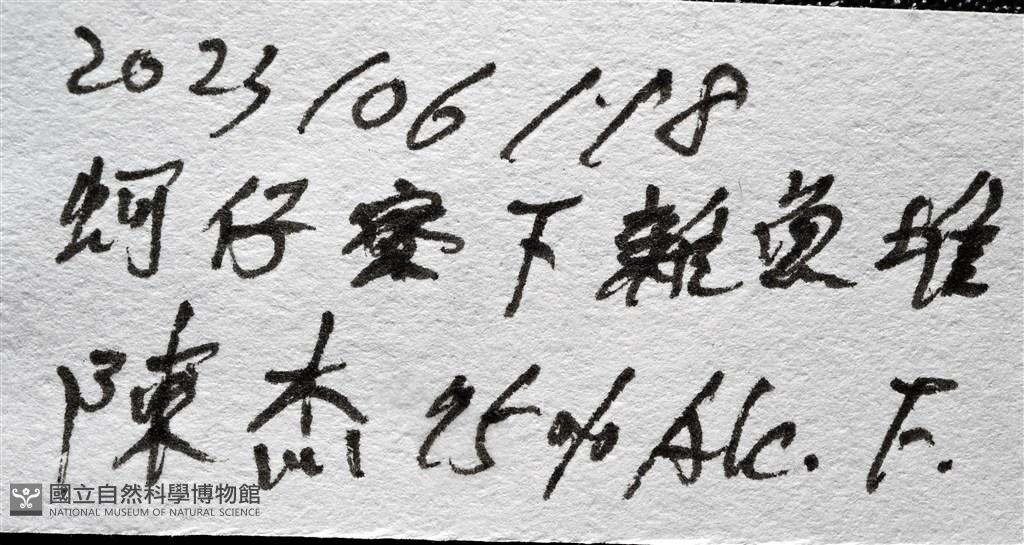 2023/06/18
蚵仔寮下雜魚堆
陳杰 95% Alc. F.
國立自然科學博物館
NATIONAL MUSEUM OF NATURAL SCIENCE